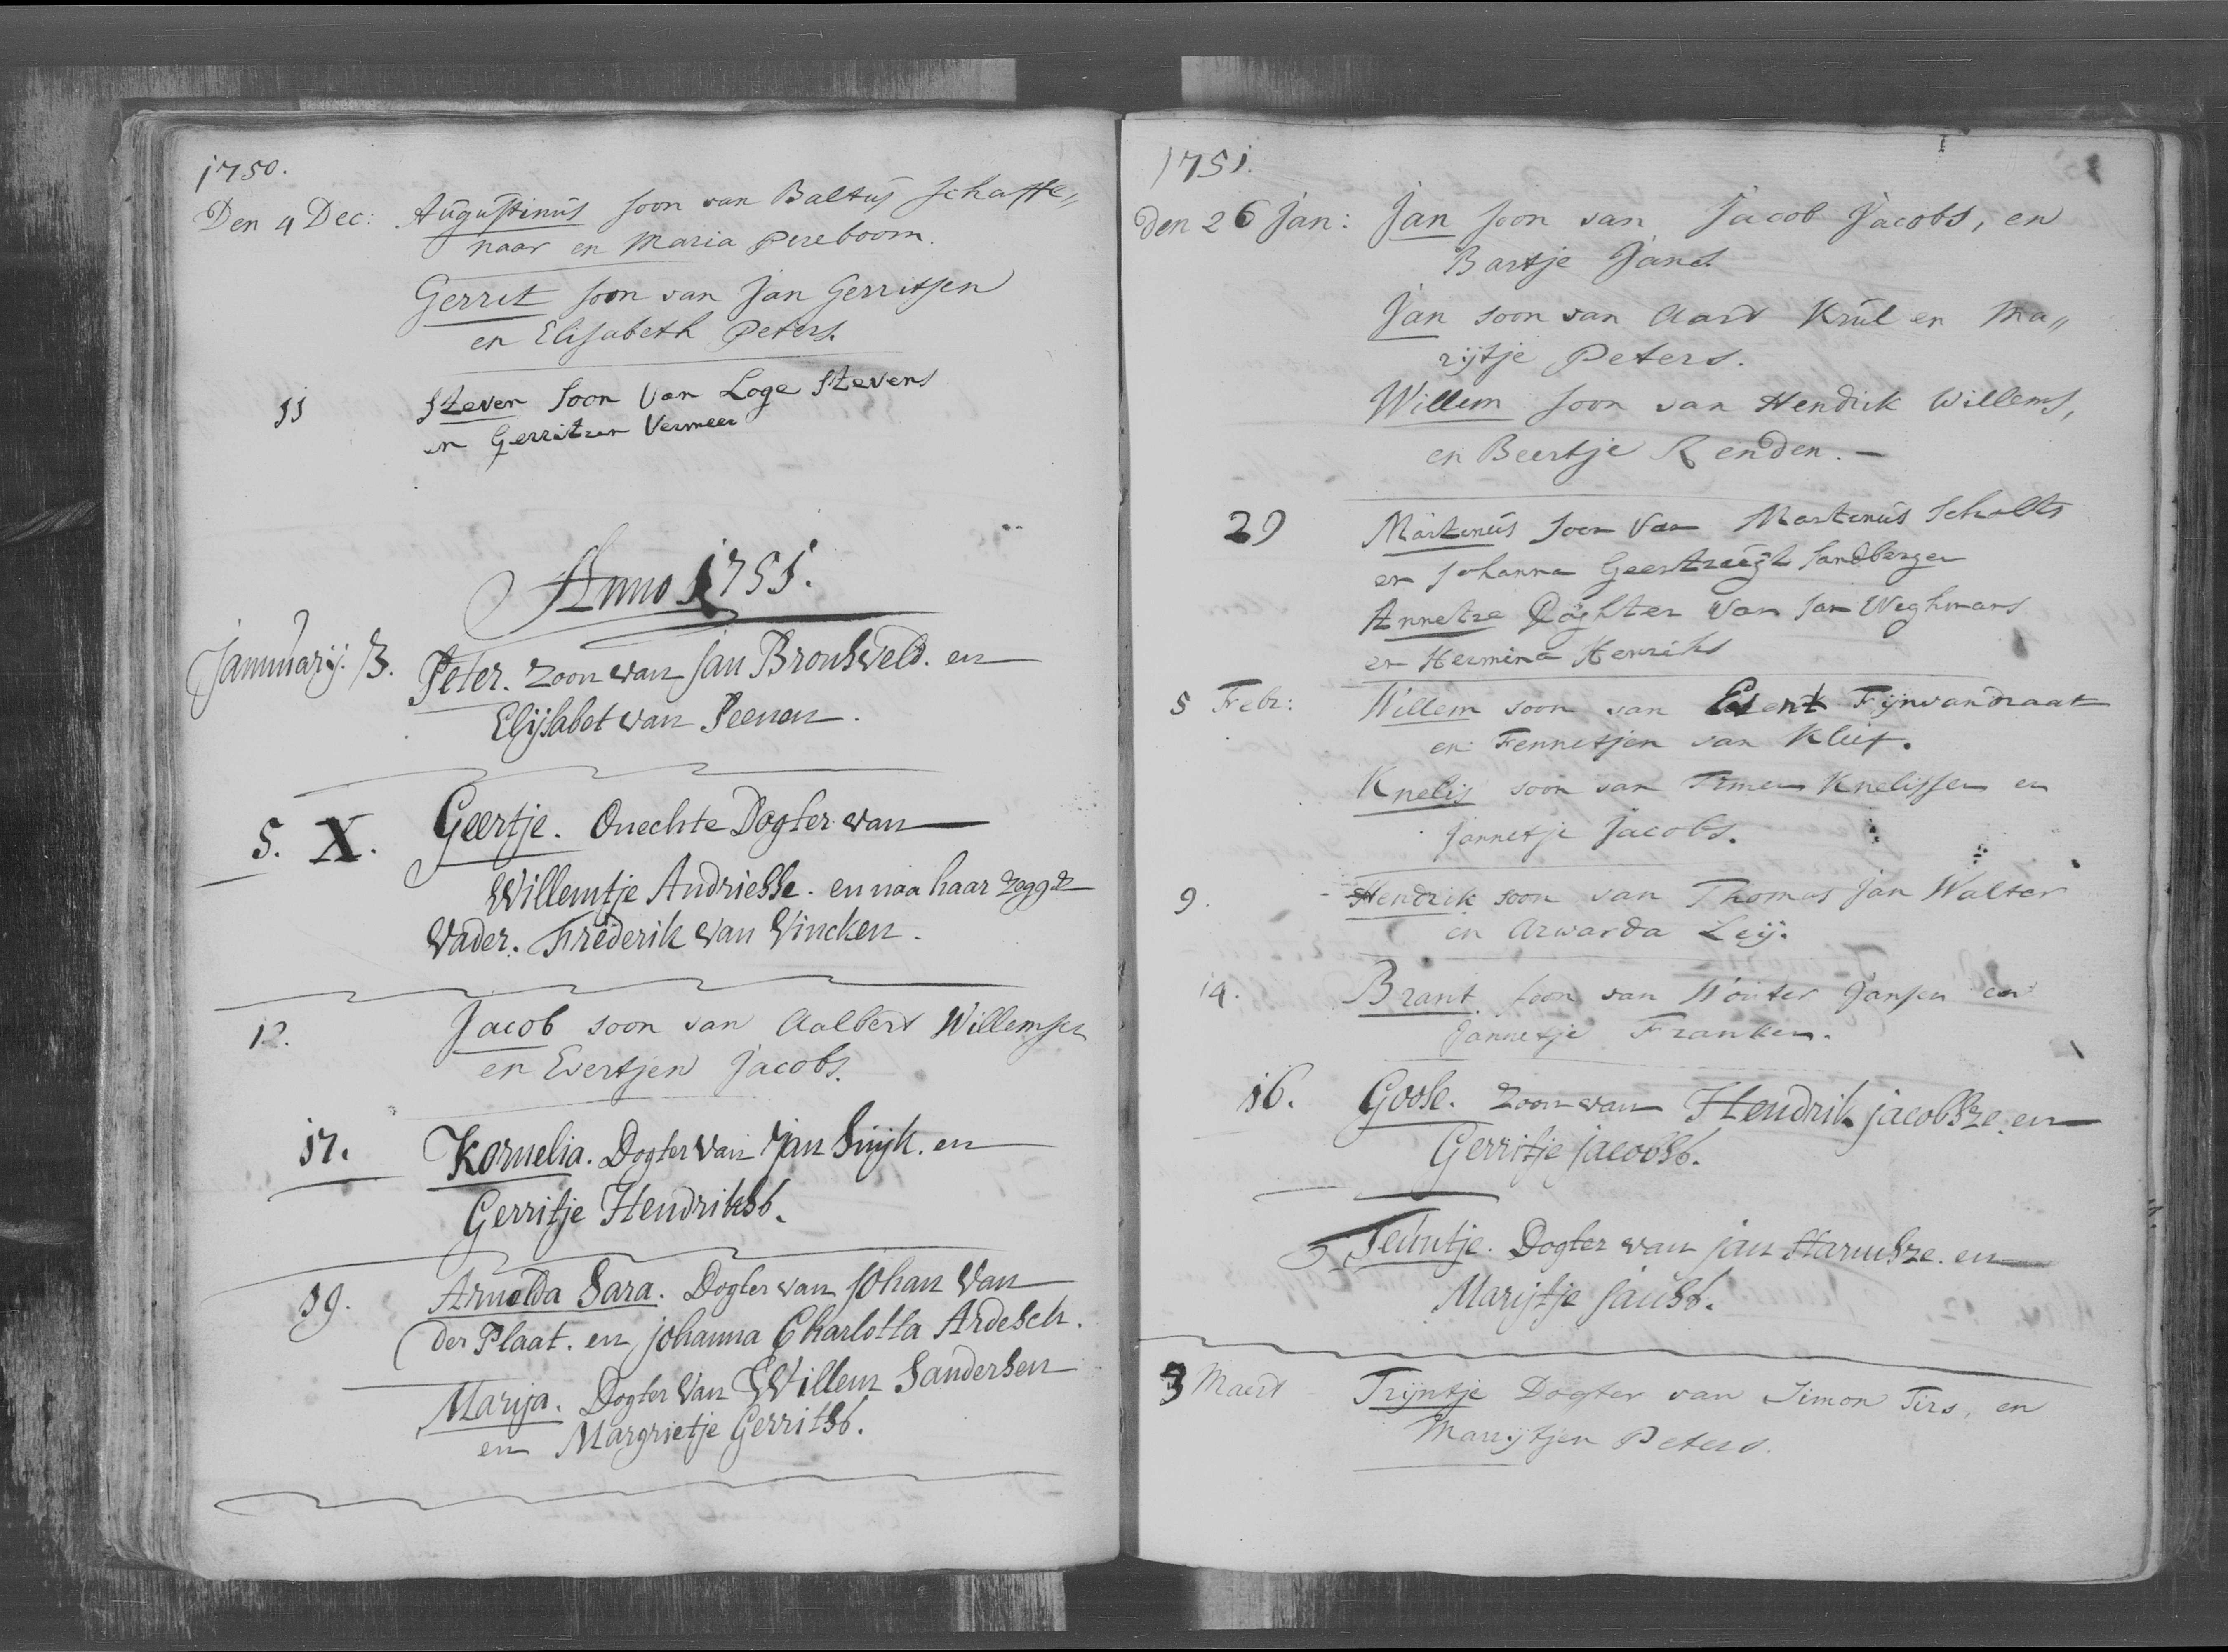 1750.
Den 4 Dec: Augustinus soon van Baltus Schaffe„
naar en Maria Pereboom.
Gerret soon van Jan Gerritsen
en Elisabeth Peters.
11 Steven Soon Van Loge Stevens
en Gerritzen Vermeer
Anno 1751.
Januuarij. 3. Peter. Zoon van Jan Bronsveld. en
Elijsabet van Peenen.
5. X. Geertje. Onechte Dogter van
Willemtje Andriesse. en naa haar zegg
Vader. Frederik van Vincken.
12. Jacob soon van Aalbert Willemsen
en Evertjen Jacobs.
17. Kornelia. Dogter van Jan Snijk. en
Gerritje Hendriksd.
19. Arnolda Sara. Dogter van Johan Van
der Plaat. en Johanna Charlotta Ardesch.
Marija. Dogter Van Willem Sandersen
en Margrietje Gerritsd.
1751.
den 26 Jan: Jan soon van Jacob Jacobs, en
Bartje Jans
Jan soon van Aart Krul en Ma„
rijtje Peters.
Willem soon van Hendrik Willems,
en Beertje Renden. —
29 Martinus soon Van Martinus Scholts
en Johanna Geertruijt Sandberger
Annetze Daghter Van Jan Weghmans
en Hermina Henriks
5 Febr: Willem soon van Evert Fijnvandraat
en Fennetjen van Kleef.
Knelis soon van Timen Knelissen en
Jannetje Jacobs.
9. Hendrik soon van Thomas Jan Walter
en Arwarda Leij.
14. Brant soon van Wouter Jansen en
Jannetje Franken.
16. Goose. Zoon van Hendrik Jacobsze. en
Gerritje Jacobsd.
Teuntje. Dogter van Jan Harmsze. en
Marijtje Jansd.
3 Maert Trijntje Dogter van Simon Tirs, en
Marijtjen Peters.